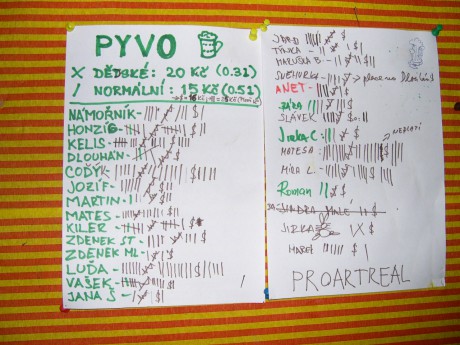 PYVO
X DĚDSKÉ: 20 Kč (0.3l)
/ NORMÁLNÍ: 15 Kč (0.5l)
NÁMOŘNÍK -
HONZI
KELLS -
DLOUHÁN -
JOZIF -
MARTIN -
MATES -
KILER -
ZDENEK ST -
ZDENEK ML -
LUĎA -
VAŠEK -
JANA Š -
TÝNKA -
MARUŠKA B -
SNEHURKA -
ANET -
SLÁVEK
Jirka C
MATESA -
MÍRA L. -
Roman
JINDRA MALÉ
JIRKA
MAREK
PROARTREAL